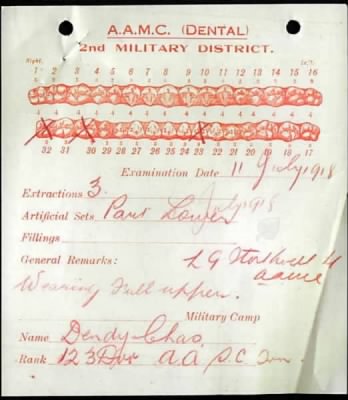 A.A.M.C. (DENTAL)
2nd MILITARY DISTRICT.
Right. Left.
1 2 3 4 5 6 7 8 9 10 11 12 13 14 15 16
32 31 30 29 28 27 26 25 24 23 22 21 20 19 18 17
Examination Date 11 July 1918
Extractions 3. July 1918
Artificial Sets Part Lower
Fillings
General Remarks: L G
aamc
Wearing Full upper.
Military Camp
Name Dendy Chas.
Rank 123 Dvr A.A. S.C.